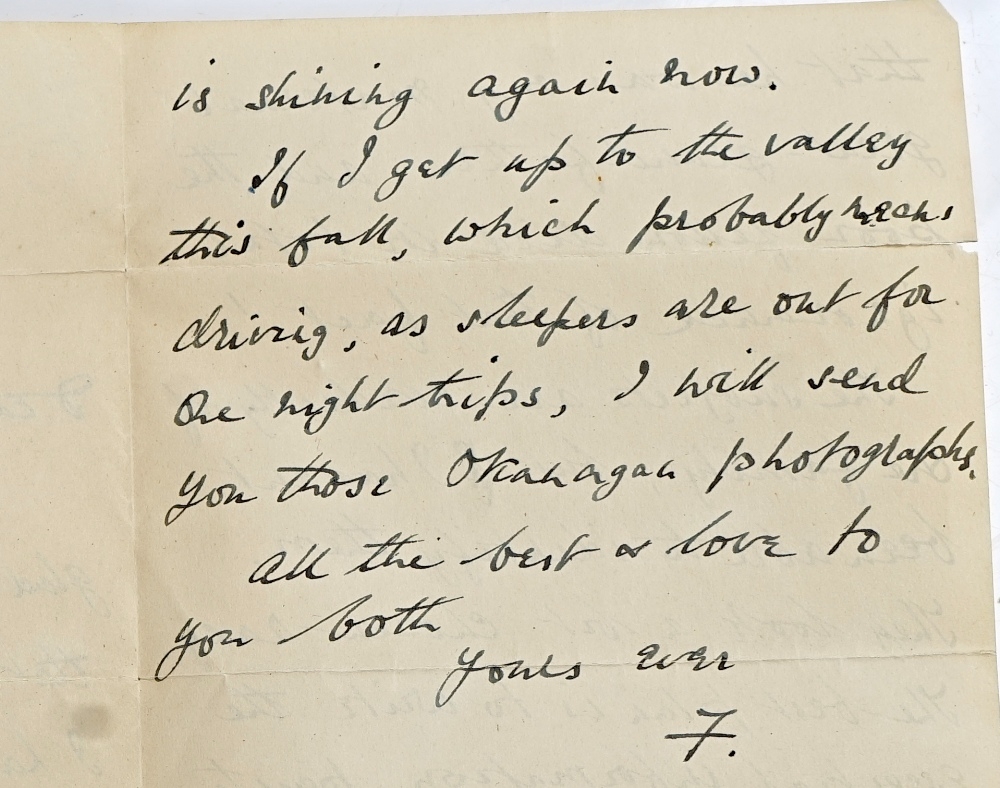 is shining again now.
If I get up to the valley
this fall, which probably means
driving, as sleepers are out for
one night trips, I will send
you those Okanagan photographs.
All the best & love to
you both
Yours ever
F.